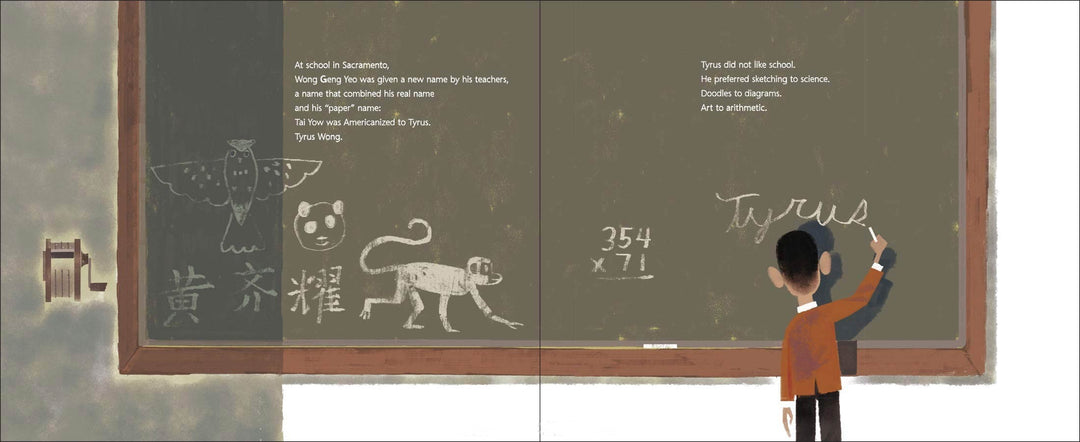 At school in Sacramento,
Wong Geng Yeo was given a new name by his teachers,
a name that combined his real name
and his “paper” name:
Tai Yow was Americanized to Tyrus.
Tyrus Wong.
黃齐耀
Tyrus did not like school.
He preferred sketching to science.
Doodles to diagrams.
Art to arithmetic.
354
x 71
Tyrus